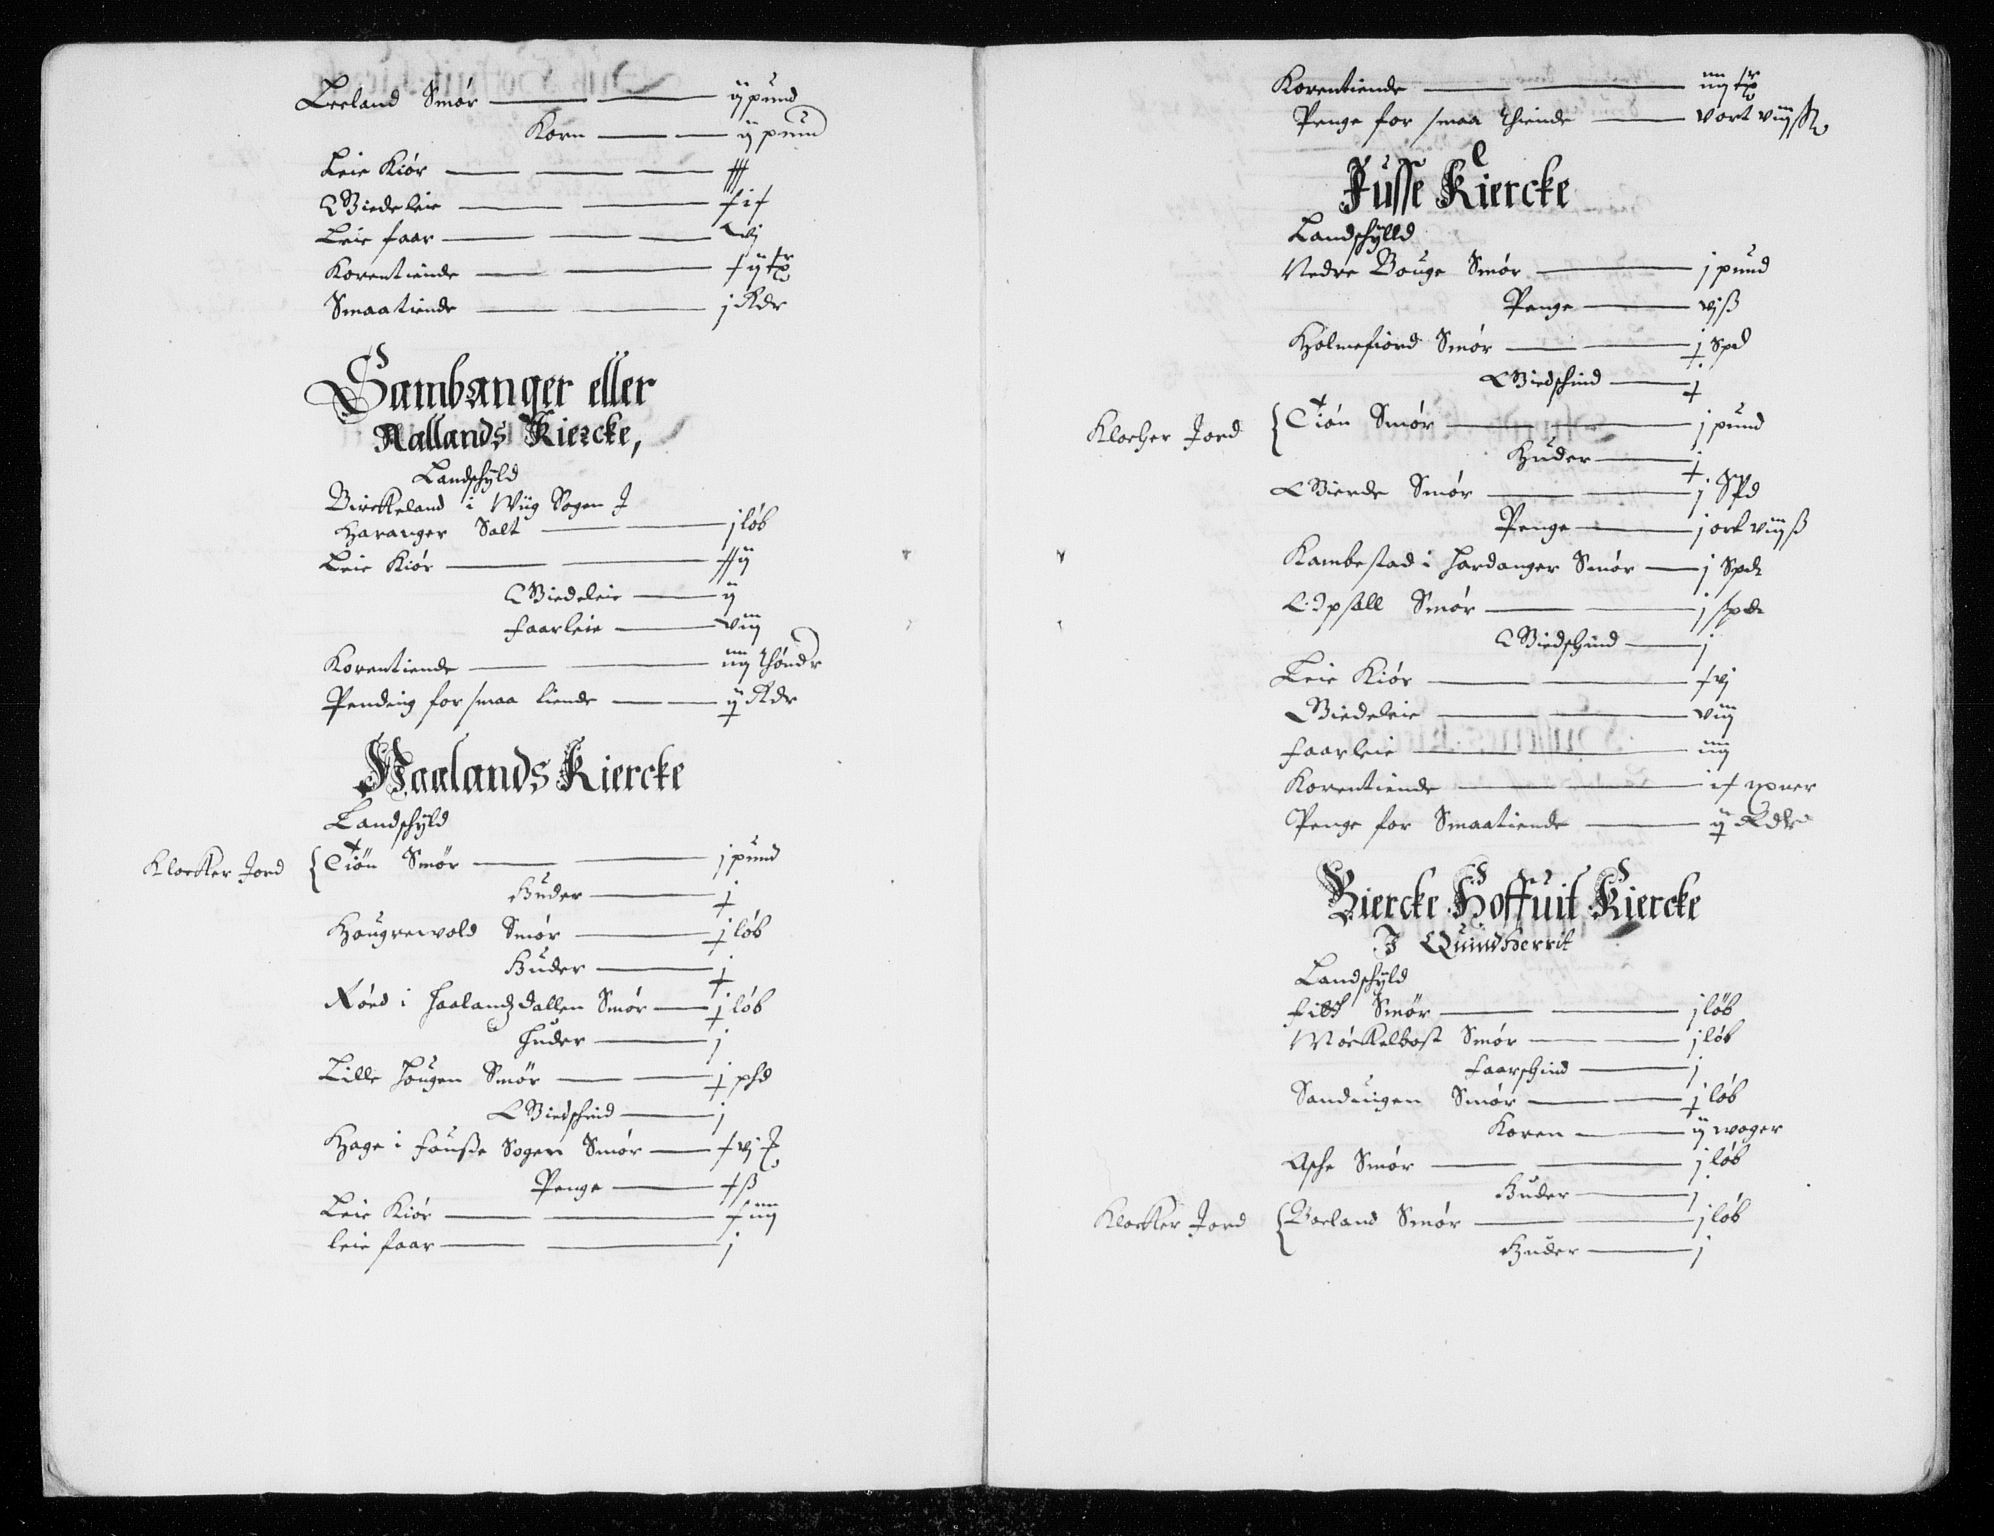 Leeland Smör ij pund
Korn ij pund
Leie Kiör
Wiedeleie
Leie faar vj
Korentiende
Smaatiende j Rdr
Sambanger eller
Aallands Kiercke,
Landschyld
Birckeland i Wiig Sogen J
Haranger Salt j löb
Leie Kiör
Wiedeleie ij
faarleie viij
Korentiende iiij thöndr
Pending for smaa tiende Rdr
Haalands Kiercke
Landschyld
Klocker Jord
Tiön Smör j pund
Huder
Hougrewold Smör löb
Huder
Röed i Haalandzdallen Smör löb
Huder j
Lille Hougen Smör
Wiedschind j
Hage i Fousse Sogen Smör
Penge
Leie Kiör
leie faar j
Korentiende
Penge for smaa thiende v ort viij sk
Fusse Kiercke
Landschylld
Nedre Bouge Smör j pund
Penge vj ß
Holmefiord Smör Spd
Wiedschind
Klocher Jord
Tiön Smör j pund
Huder
Wierde Smör j Spd
Penge j ort viij ß
Kambestad i Hardanger Smör j Spd
Opsall Smör j spd
Wiedschind j
Leie Kiör
Wiedeleie viij
faarleie iiij
Korentiende
Penge for Smaatiende Rdr
Biercke Hoffuit Kiercke
J Quindherrit
Landschyld
Smör j löb
Möckelbost Smör j löb
faarschind j
Sanduigen Smör löb
Koren ij woger
Asche Smör j löb
Huder j
Klocker Jord
Boeland Smör j löb
Huder j